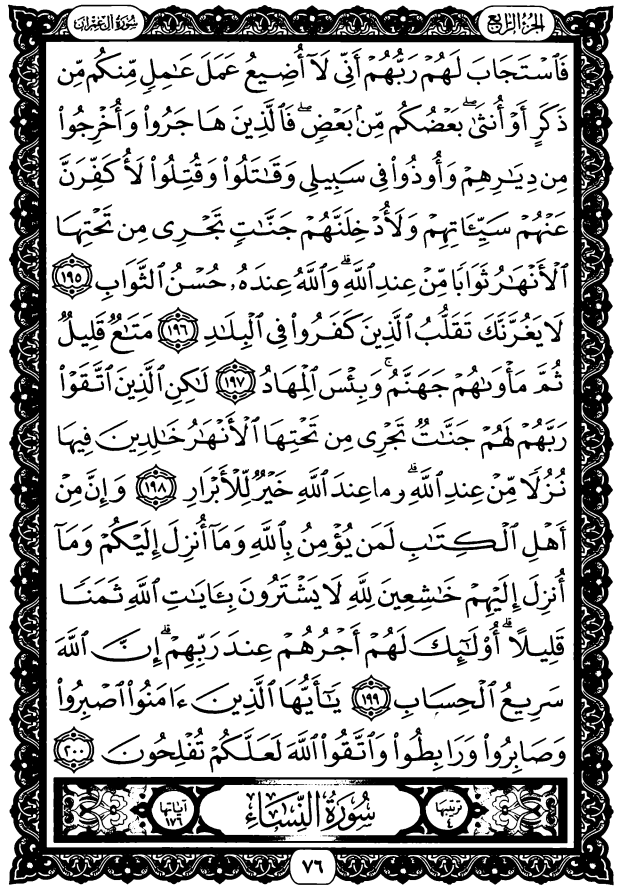 سُورَةُ آلِ عِمْرَان
الجُزْءُ الرَّابِعُ
فَٱسْتَجَابَ لَهُمْ رَبُّهُمْ أَنِّى لَآ أُضِيعُ عَمَلَ عَٰمِلٍ مِّنكُم مِّن
ذَكَرٍ أَوْ أُنثَىٰۖ بَعْضُكُم مِّنۢ بَعْضٍۖ فَٱلَّذِينَ هَاجَرُوا۟ وَأُخْرِجُوا۟
مِن دِيَٰرِهِمْ وَأُوذُوا۟ فِى سَبِيلِى وَقَٰتَلُوا۟ وَقُتِلُوا۟ لَأُكَفِّرَنَّ
عَنْهُمْ سَيِّـَٔاتِهِمْ وَلَأُدْخِلَنَّهُمْ جَنَّٰتٍ تَجْرِى مِن تَحْتِهَا
ٱلْأَنْهَٰرُ ثَوَابًا مِّنْ عِندِ ٱللَّهِۗ وَٱللَّهُ عِندَهُۥ حُسْنُ ٱلثَّوَابِ ١٩٥
لَا يَغُرَّنَّكَ تَقَلُّبُ ٱلَّذِينَ كَفَرُوا۟ فِى ٱلْبِلَٰدِ ١٩٦ مَتَٰعٌ قَلِيلٌ
ثُمَّ مَأْوَىٰهُمْ جَهَنَّمُۚ وَبِئْسَ ٱلْمِهَادُ ١٩٧ لَٰكِنِ ٱلَّذِينَ ٱتَّقَوْا۟
رَبَّهُمْ لَهُمْ جَنَّٰتٌ تَجْرِى مِن تَحْتِهَا ٱلْأَنْهَٰرُ خَٰلِدِينَ فِيهَا
نُزُلًا مِّنْ عِندِ ٱللَّهِۗ وَمَا عِندَ ٱللَّهِ خَيْرٌ لِّلْأَبْرَارِ ١٩٨ وَإِنَّ مِنْ
أَهْلِ ٱلْكِتَٰبِ لَمَن يُؤْمِنُ بِٱللَّهِ وَمَآ أُنزِلَ إِلَيْكُمْ وَمَآ
أُنزِلَ إِلَيْهِمْ خَٰشِعِينَ لِلَّهِ لَا يَشْتَرُونَ بِـَٔايَٰتِ ٱللَّهِ ثَمَنًا
قَلِيلًاۗ أُو۟لَٰٓئِكَ لَهُمْ أَجْرُهُمْ عِندَ رَبِّهِمْۗ إِنَّ ٱللَّهَ
سَرِيعُ ٱلْحِسَابِ ١٩٩ يَٰٓأَيُّهَا ٱلَّذِينَ ءَامَنُوا۟ ٱصْبِرُوا۟
وَصَابِرُوا۟ وَرَابِطُوا۟ وَٱتَّقُوا۟ ٱللَّهَ لَعَلَّكُمْ تُفْلِحُونَ ٢٠٠
ترتيبها ٤
سُورَةُ النِّسَاءِ
آياتها ١٧٦
٧٦